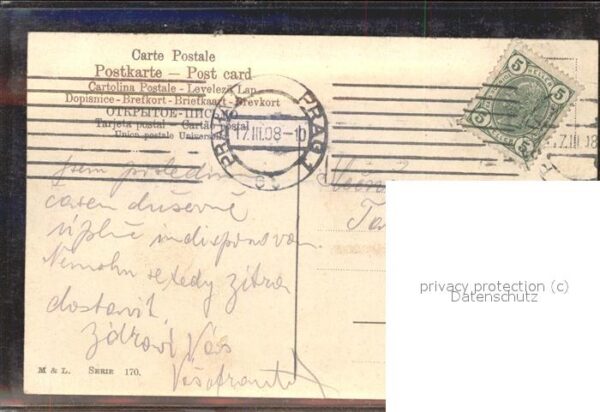 Carte Postale
Postkarte — Post card
Cartolina Postale - Levelező Lap
Dopisnice - Brefkort - Briefkaart - Brevkort
ОТКРЫТОЕ-ПИСЬ
Tarjeta postal - Cartão postal
Union postale Universelle
PRAHA PRAG
17.III.08-10
5 5
5 5
7.III.08
Jsem poslední
časem duševně
úplně indisponován.
Nemohu se tedy zítra
dostavit
Zdraví Vás
M & L. SERIE 170.
privacy protection (c)
Datenschutz